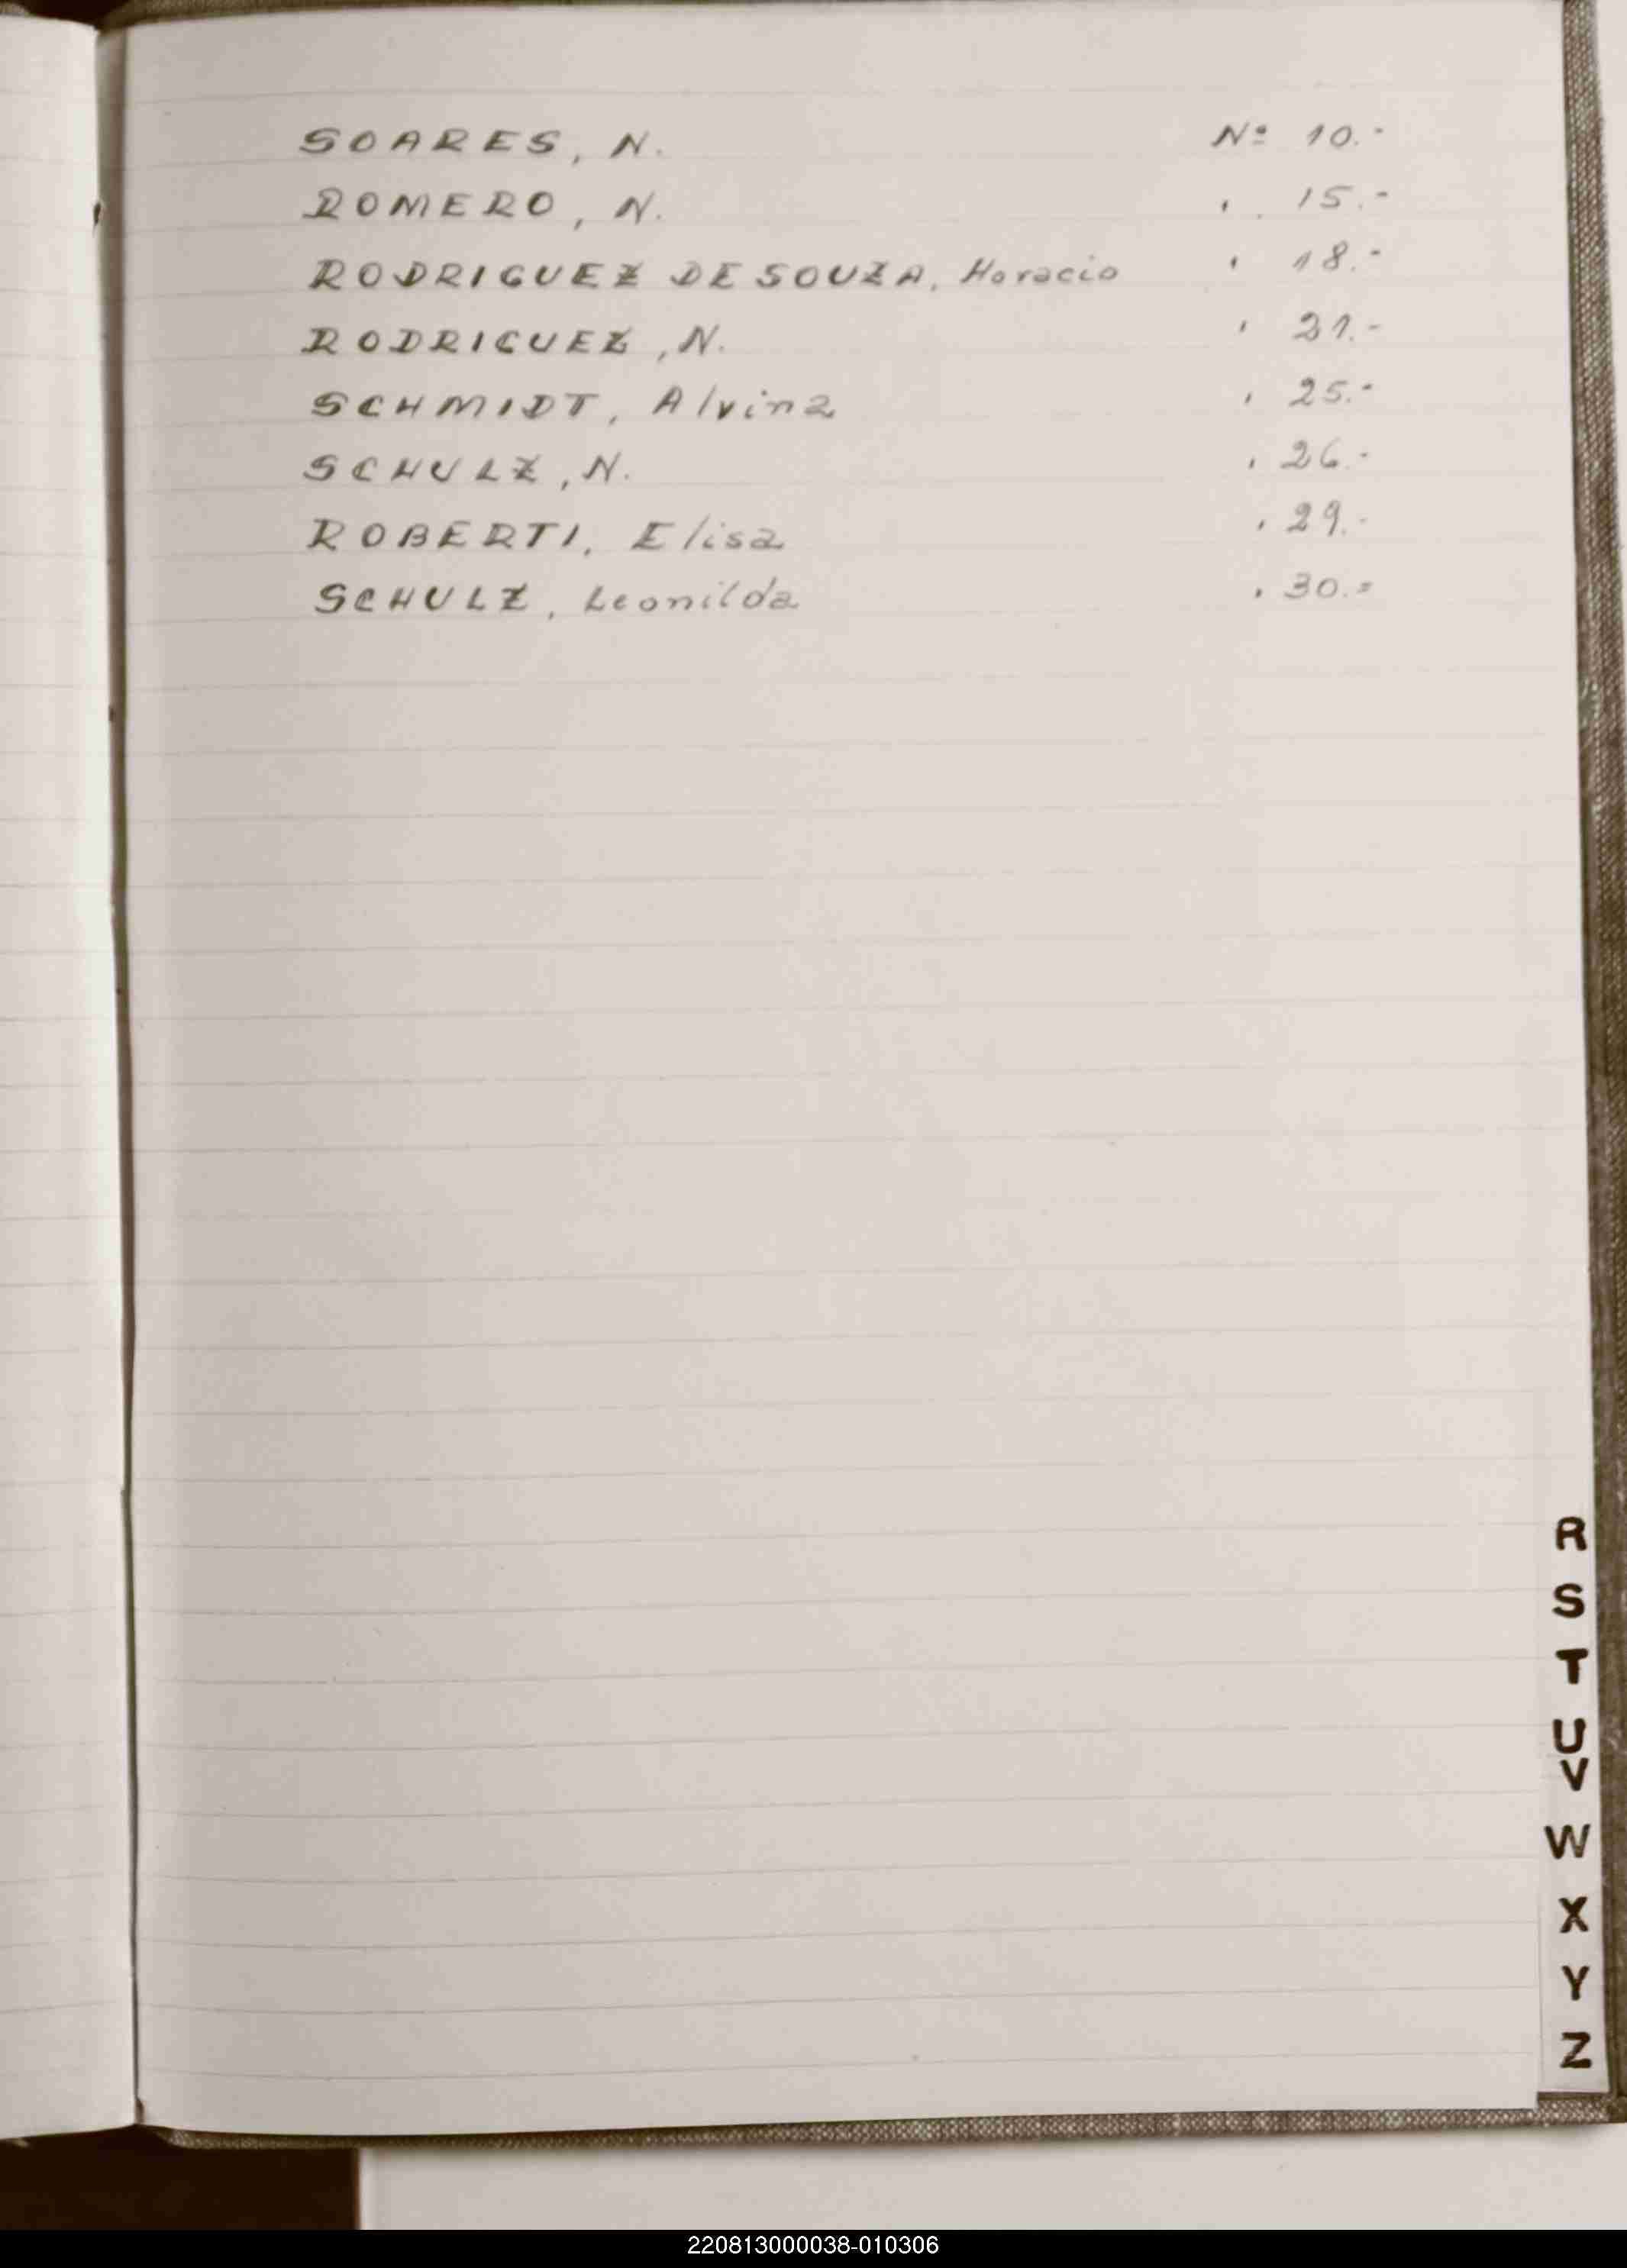 SOARES, N. Nº 10.-
ROMERO, N. " 15.-
RODRIGUEZ DE SOUZA, Horacio " 18.-
RODRIGUEZ, N. " 21.-
SCHMIDT, Alvina " 25.-
SCHULZ, N. " 26.-
ROBERTI, Elisa " 29.-
SCHULZ, Leonilda " 30.=
R
S
T
U
V
W
X
Y
Z
220813000038-010306